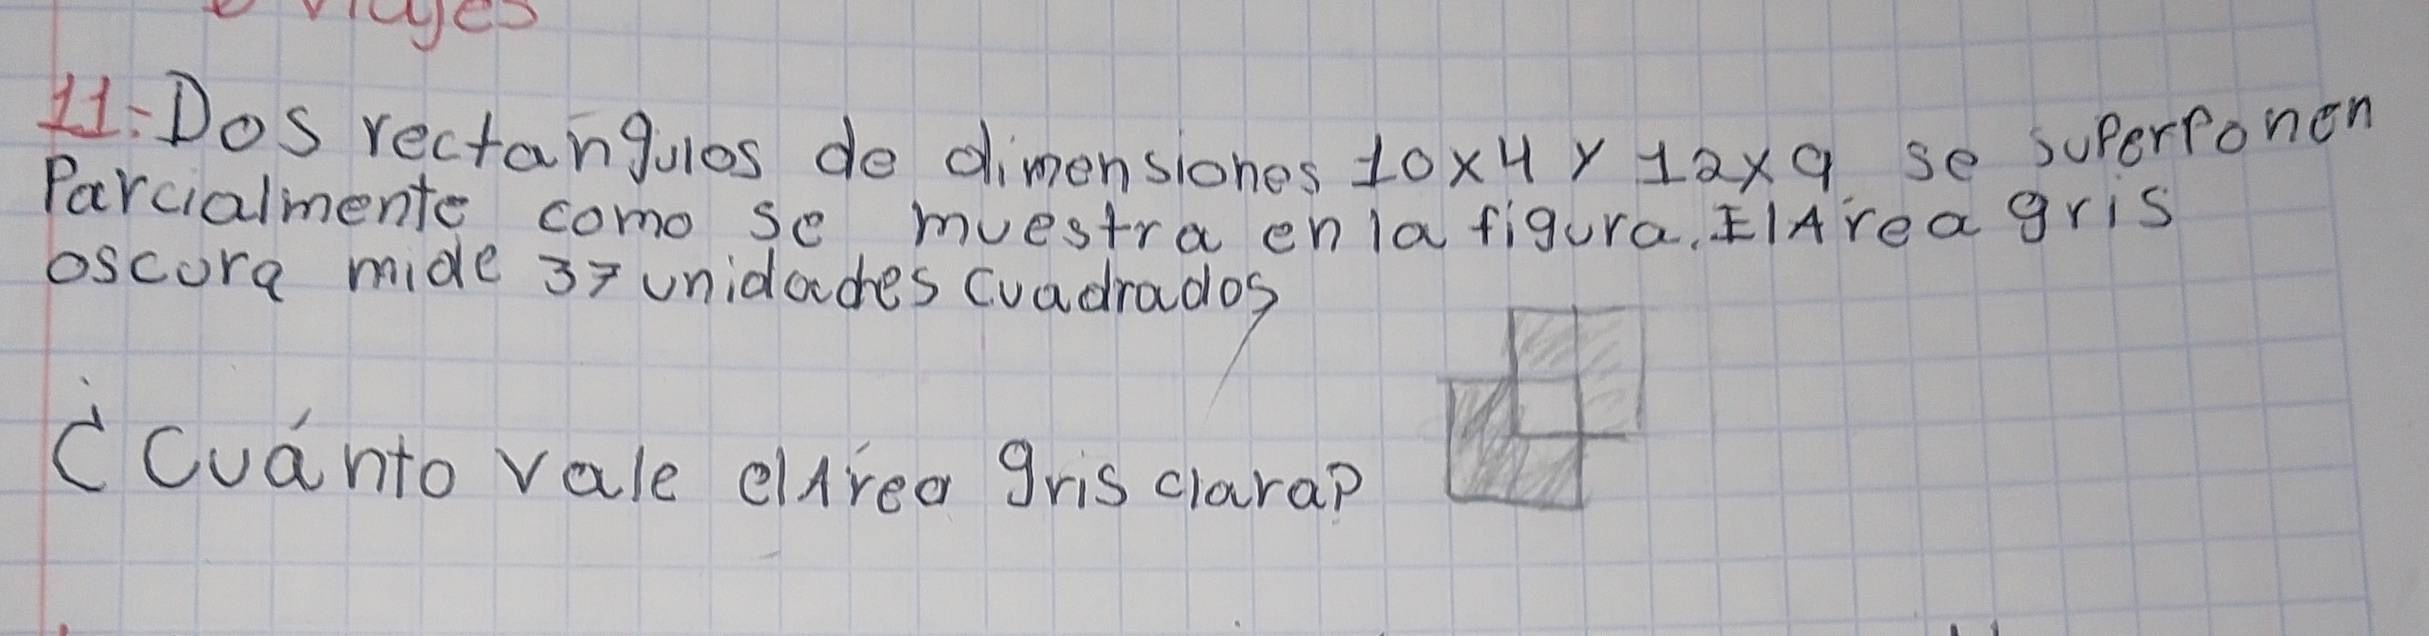 11: Dos rectangulos de dimensiones 10x4 y 12x9 se superponen
Parcialmente como se muestra en la figura. El Área gris
oscura mide 37 unidades cuadrados
¿Cuánto vale el Área gris clara?